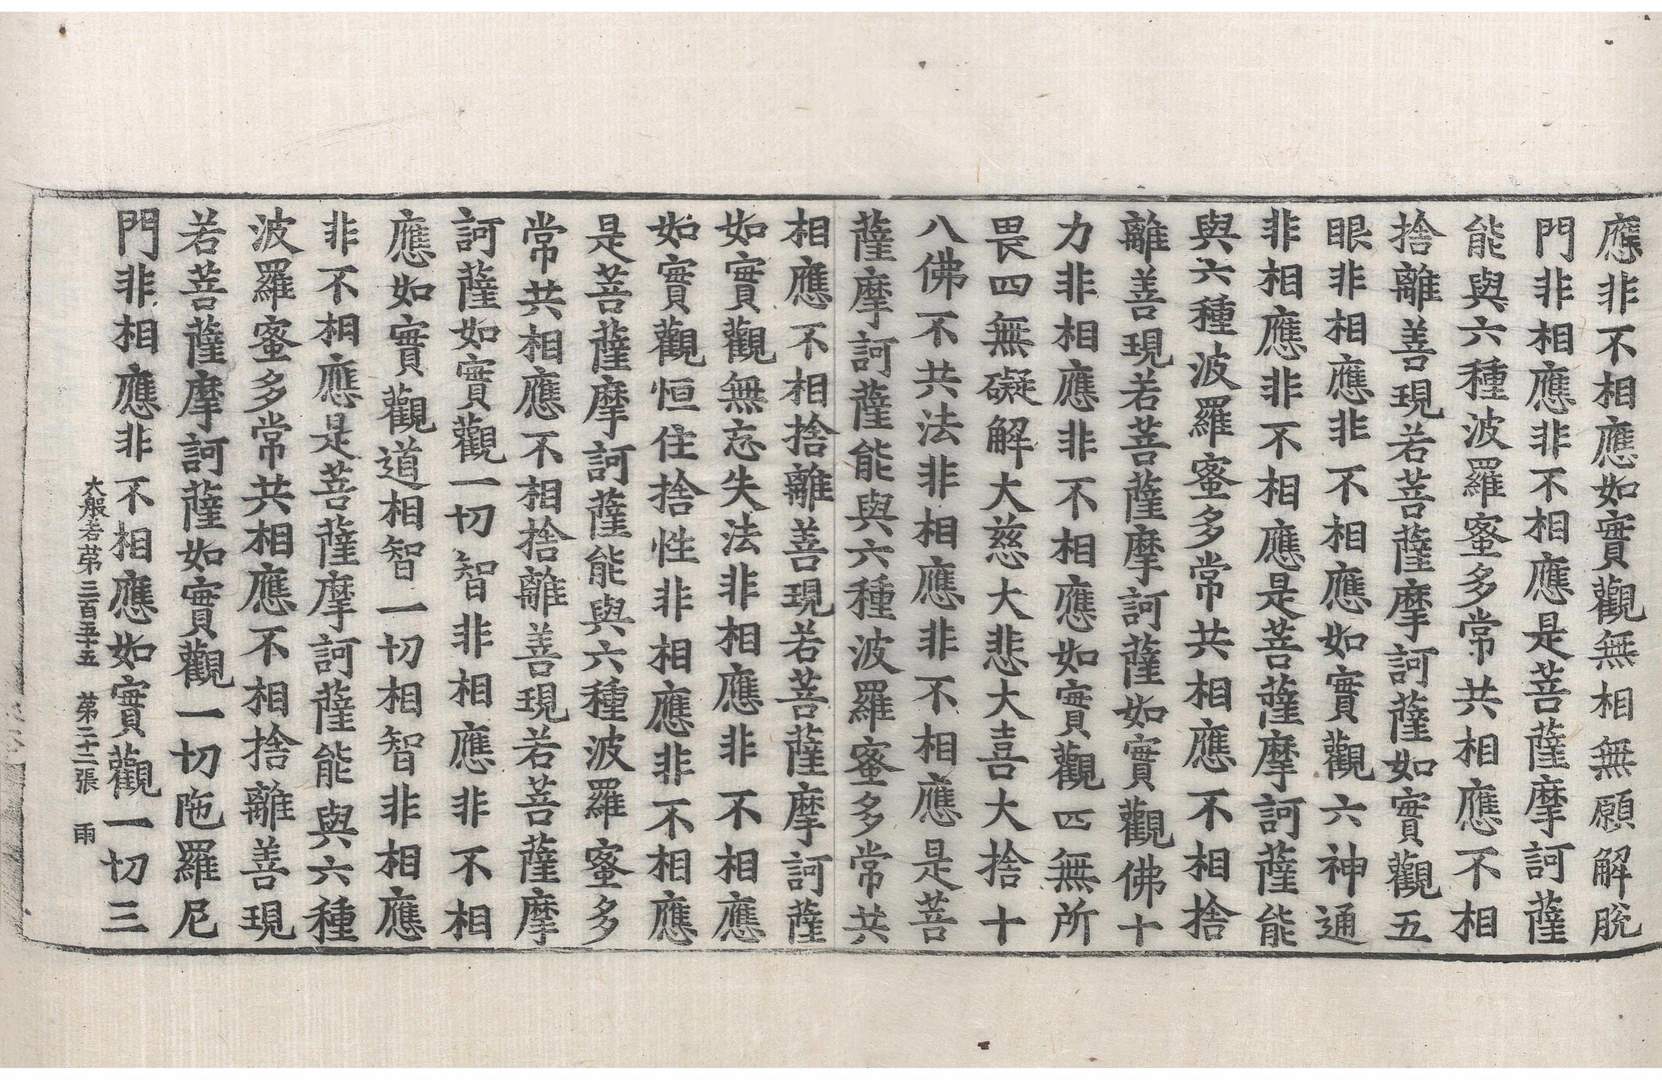 應非不相應如實觀無相無願解脫
門非相應非不相應是菩薩摩訶薩
能與六種波羅蜜多常共相應不相
捨離善現若菩薩摩訶薩如實觀五
眼非相應非不相應如實觀六神通
非相應非不相應是菩薩摩訶薩能
與六種波羅蜜多常共相應不相捨
離善現若菩薩摩訶薩如實觀佛十
力非相應非不相應如實觀四無所
畏四無礙解大慈大悲大喜大捨十
八佛不共法非相應非不相應是菩
薩摩訶薩能與六種波羅蜜多常共
相應不相捨離善現若菩薩摩訶薩
如實觀無忘失法非相應非不相應
如實觀恒住捨性非相應非不相應
是菩薩摩訶薩能與六種波羅蜜多
常共相應不相捨離善現若菩薩摩
訶薩如實觀一切智非相應非不相
應如實觀道相智一切相智非相應
非不相應是菩薩摩訶薩能與六種
波羅蜜多常共相應不相捨離善現
若菩薩摩訶薩如實觀一切陁羅尼
門非相應非不相應如實觀一切三
大般若苐三百五十五　苐二十二張　雨